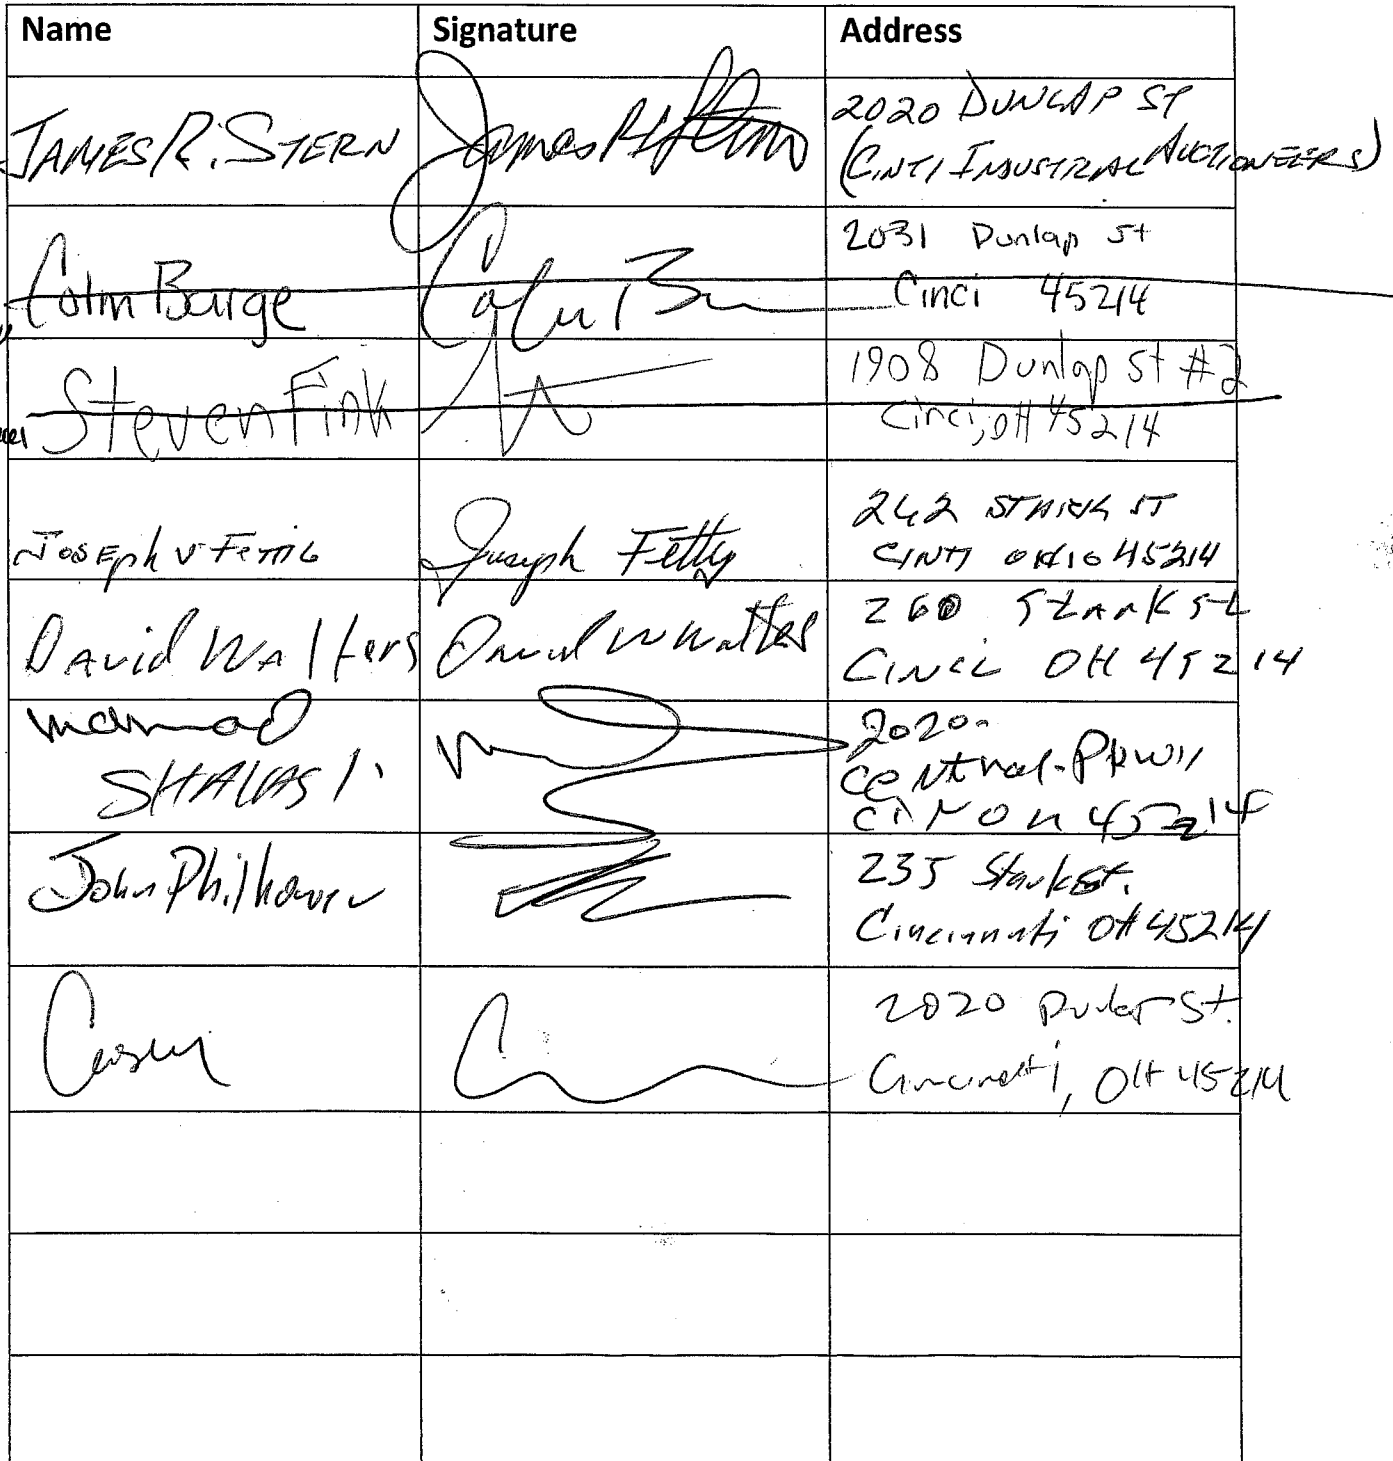 Name Signature Address
JAMES R. STERN James R Stern 2020 DUNLAP ST
(CINTI INDUSTRIAL AUCTIONEERS)
Colin Barge 2031 Dunlap St
Cinci 45214
Steven Fink 1908 Dunlap St #2
Cinci, OH 45214
Joseph V Fettig Joseph Fettig 242 STARK ST
CINTI OHIO 45214
David Walters David W Walters 260 Stark St
CINCI OH 45214
SHAVASI 2020
central PKWY
CIN OH 45214
John 235 Stark St.
Cincinnati OH 45214
Casey 2020 Dunlap St.
Cincinnati, OH 45214